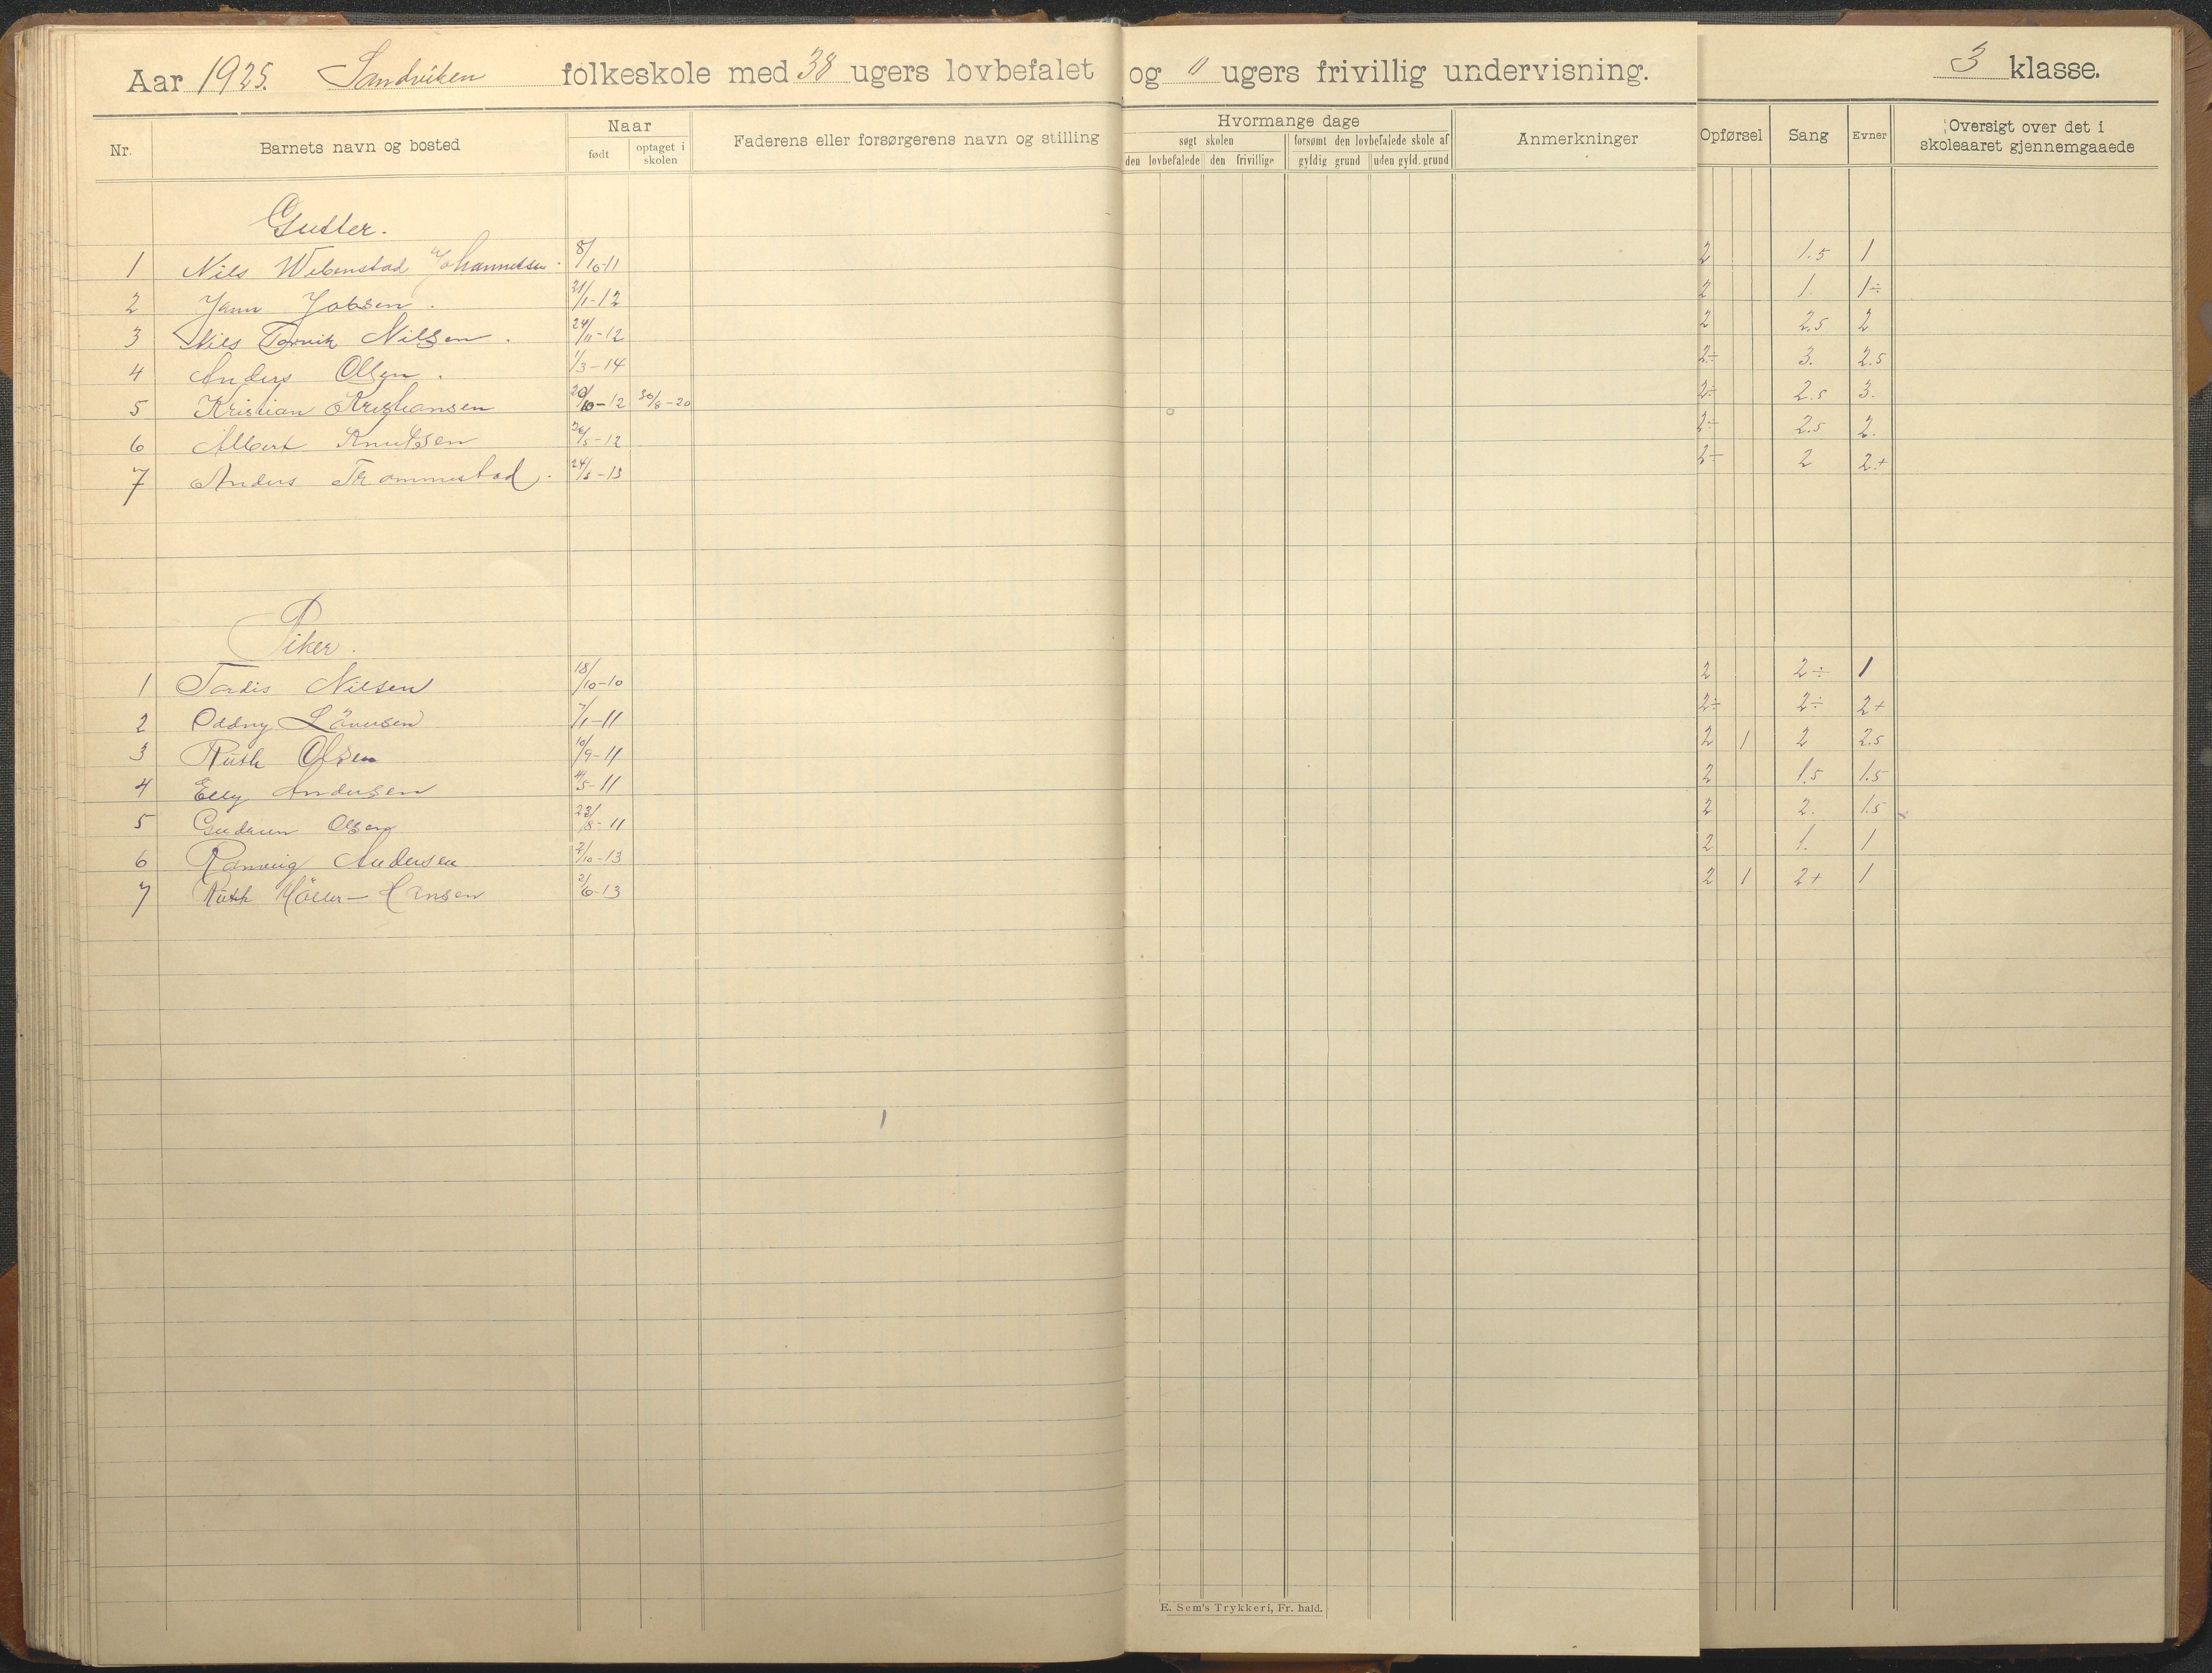 Aar 1925. Sandviken folkeskole med 38 ugers lovbefalet og 0 ugers frivillig undervisning. 3 klasse.
Nr. Barnets navn og bosted Naar født optaget i skolen Faderens eller forsørgerens navn og stilling Hvormange dage søgt skolen den lovbefalede den frivillige forsømt den lovbefalede skole af gyldig grund uden gyld. grund Anmerkninger Opførsel Sang Evner Oversigt over det i skoleaaret gjennemgaaede
Gutter.
1 Nils Johannessen 8/10-11 2 1.5 1
2 Jann Jobsen. 21/1-12 2 1. 1÷
3 Nils Nilsen. 24/11-12 2 2.5 2
4 Anders Olsen. 1/3-14 2÷ 3. 2.5
5 Kristian Kristiansen 20/10-12 30/8-20 2÷ 2.5 3.
6 Albert Knutsen 26/5-12 2÷ 2.5 2.
7 Anders Trommestad. 24/5-13 2÷ 2 2+
Piker.
1 Tordis Nilsen 18/10-10 2 2÷ 1
2 Oddny 7/1-11 2÷ 2÷ 2+
3 Ruth Olsen 10/9-11 2 1 2 2.5
4 Elly Andersen 4/5-11 2 1.5 1.5
5 Gudrun Olsen 23/8-11 2 2. 1.5
6 Ranveig Andersen 2/10-13 2 1. 1
7 Ruth Möller-Hansen 2/6-13 2 1 2+ 1
E. Sem's Trykkeri, Fr. hald.